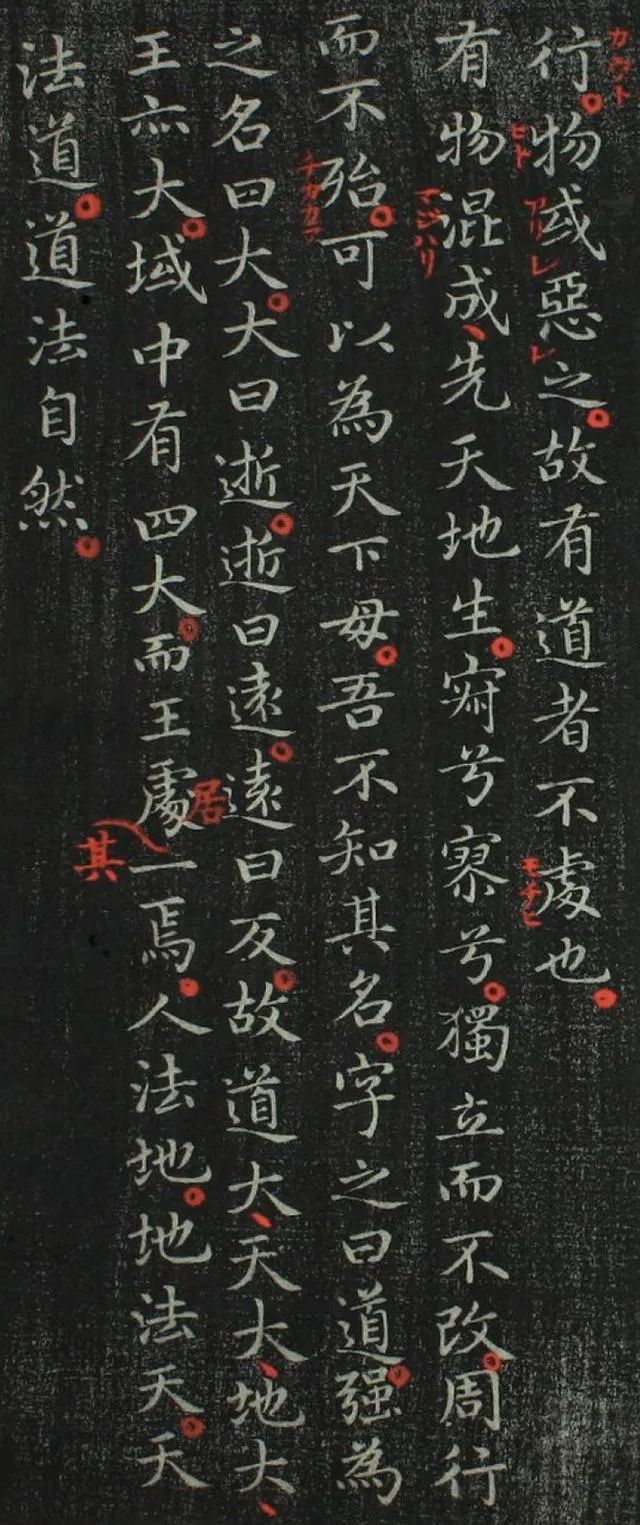 行。物或惡之。故有道者不處也。
有物混成、先天地生。寂兮寥兮。獨立而不改。周行
而不殆。可以為天下母。吾不知其名。字之曰道。强為
之名曰大。大曰逝。逝曰遠。遠曰反。故道大、天大、地大、
王亦大。域中有四大。而王處一焉。人法地。地法天。天
法道。道法自然。
マジハリ
モチヒ
居
其